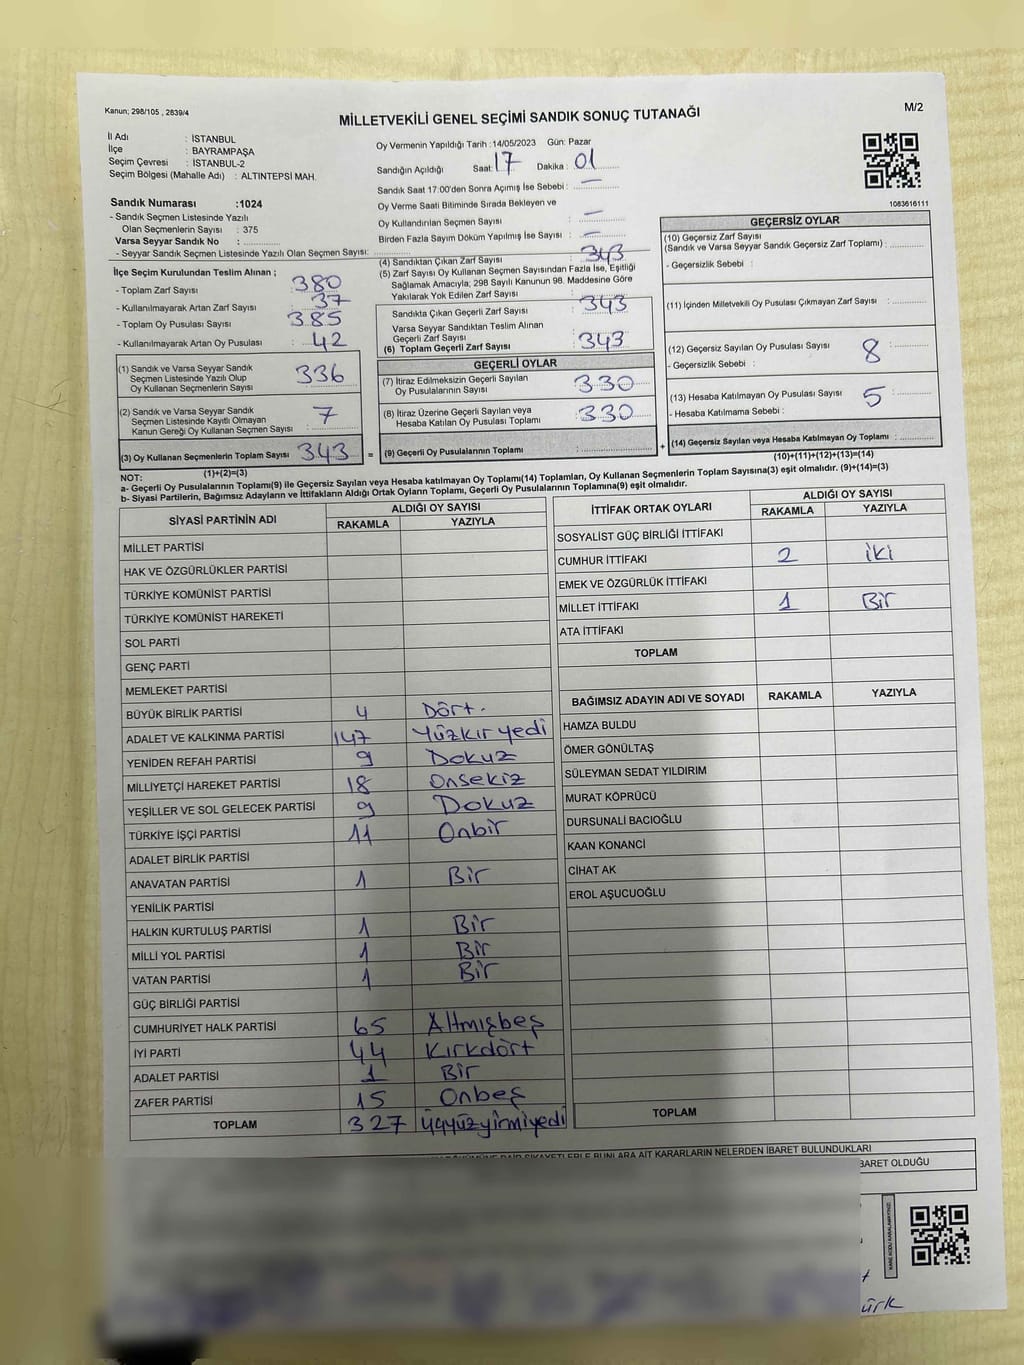 Kanun; 298/105 , 2839/4
MİLLETVEKİLİ GENEL SEÇİMİ SANDIK SONUÇ TUTANAĞI
M/2
İl Adı : İSTANBUL
İlçe : BAYRAMPAŞA
Seçim Çevresi : İSTANBUL-2
Seçim Bölgesi (Mahalle Adı) : ALTINTEPSİ MAH.
Sandık Numarası :1024
- Sandık Seçmen Listesinde Yazılı
Olan Seçmenlerin Sayısı : 375
Varsa Seyyar Sandık No :
- Seyyar Sandık Seçmen Listesinde Yazılı Olan Seçmen Sayısı:
Oy Vermenin Yapıldığı Tarih :14/05/2023 Gün: Pazar
Sandığın Açıldığı Saat: 17 Dakika : 01
Sandık Saat 17:00'den Sonra Açımış İse Sebebi : —
Oy Verme Saati Bitiminde Sırada Bekleyen ve
Oy Kullandırılan Seçmen Sayısı : —
Birden Fazla Sayım Döküm Yapılmış İse Sayısı : —
1083616111
İlçe Seçim Kurulundan Teslim Alınan ;
- Toplam Zarf Sayısı : 380
- Kullanılmayarak Artan Zarf Sayısı : 37
- Toplam Oy Pusulası Sayısı : 385
- Kullanılmayarak Artan Oy Pusulası : 42
(1) Sandık ve Varsa Seyyar Sandık
Seçmen Listesinde Yazılı Olup
Oy Kullanan Seçmenlerin Sayısı : 336
(2) Sandık ve Varsa Seyyar Sandık
Seçmen Listesinde Kayıtlı Olmayan
Kanun Gereği Oy Kullanan Seçmen Sayısı : 7
(3) Oy Kullanan Seçmenlerin Toplam Sayısı : 343 =
(1)+(2)=(3)
(4) Sandıktan Çıkan Zarf Sayısı : 343
(5) Zarf Sayısı Oy Kullanan Seçmen Sayısından Fazla İse, Eşitliği
Sağlamak Amacıyla; 298 Sayılı Kanunun 98. Maddesine Göre
Yakılarak Yok Edilen Zarf Sayısı :
Sandıkta Çıkan Geçerli Zarf Sayısı : 343
Varsa Seyyar Sandıktan Teslim Alınan
Geçerli Zarf Sayısı :
(6) Toplam Geçerli Zarf Sayısı : 343
GEÇERLİ OYLAR
(7) İtiraz Edilmeksizin Geçerli Sayılan
Oy Pusulalarının Sayısı : 330
(8) İtiraz Üzerine Geçerli Sayılan veya
Hesaba Katılan Oy Pusulası Toplamı : 330
(9) Geçerli Oy Pusulalarının Toplamı : +
GEÇERSİZ OYLAR
(10) Geçersiz Zarf Sayısı
(Sandık ve Varsa Seyyar Sandık Geçersiz Zarf Toplamı) :
- Geçersizlik Sebebi :
(11) İçinden Milletvekili Oy Pusulası Çıkmayan Zarf Sayısı :
(12) Geçersiz Sayılan Oy Pusulası Sayısı : 8
- Geçersizlik Sebebi :
(13) Hesaba Katılmayan Oy Pusulası Sayısı : 5
- Hesaba Katılmama Sebebi :
(14) Geçersiz Sayılan veya Hesaba Katılmayan Oy Toplamı :
(10)+(11)+(12)+(13)=(14)
NOT:
a- Geçerli Oy Pusulalarının Toplamı(9) ile Geçersiz Sayılan veya Hesaba katılmayan Oy Toplamı(14) Toplamları, Oy Kullanan Seçmenlerin Toplam Sayısına(3) eşit olmalıdır. (9)+(14)=(3)
b- Siyasi Partilerin, Bağımsız Adayların ve İttifakların Aldığı Ortak Oyların Toplamı, Geçerli Oy Pusulalarının Toplamına(9) eşit olmalıdır.
SİYASİ PARTİNİN ADI ALDIĞI OY SAYISI
RAKAMLA YAZIYLA
MİLLET PARTİSİ
HAK VE ÖZGÜRLÜKLER PARTİSİ
TÜRKİYE KOMÜNİST PARTİSİ
TÜRKİYE KOMÜNİST HAREKETİ
SOL PARTİ
GENÇ PARTİ
MEMLEKET PARTİSİ
BÜYÜK BİRLİK PARTİSİ 4 Dört.
ADALET VE KALKINMA PARTİSİ 147 Yüzkır yedi
YENİDEN REFAH PARTİSİ 9 Dokuz
MİLLİYETÇİ HAREKET PARTİSİ 18 Onsekiz
YEŞİLLER VE SOL GELECEK PARTİSİ 9 Dokuz
TÜRKİYE İŞÇİ PARTİSİ 11 Onbir
ADALET BİRLİK PARTİSİ
ANAVATAN PARTİSİ 1 Bir
YENİLİK PARTİSİ
HALKIN KURTULUŞ PARTİSİ 1 Bir
MİLLİ YOL PARTİSİ 1 Bir
VATAN PARTİSİ 1 Bir
GÜÇ BİRLİĞİ PARTİSİ
CUMHURİYET HALK PARTİSİ 65 Altmışbeş
İYİ PARTİ 44 Kırkdört
ADALET PARTİSİ 1 Bir
ZAFER PARTİSİ 15 Onbeş
TOPLAM 327 üçyüzyirmiyedi
İTTİFAK ORTAK OYLARI ALDIĞI OY SAYISI
RAKAMLA YAZIYLA
SOSYALİST GÜÇ BİRLİĞİ İTTİFAKI
CUMHUR İTTİFAKI 2 İki
EMEK VE ÖZGÜRLÜK İTTİFAKI
MİLLET İTTİFAKI 1 Bir
ATA İTTİFAKI
TOPLAM
BAĞIMSIZ ADAYIN ADI VE SOYADI RAKAMLA YAZIYLA
HAMZA BULDU
ÖMER GÖNÜLTAŞ
SÜLEYMAN SEDAT YILDIRIM
MURAT KÖPRÜCÜ
DURSUNALİ BACIOĞLU
KAAN KONANCİ
CİHAT AK
EROL AŞUCUOĞLU
TOPLAM
ŞİKAYETLERLE BUNLARA AİT KARARLARIN NELERDEN İBARET BULUNDUKLARI
BARET OLDUĞU
ürk